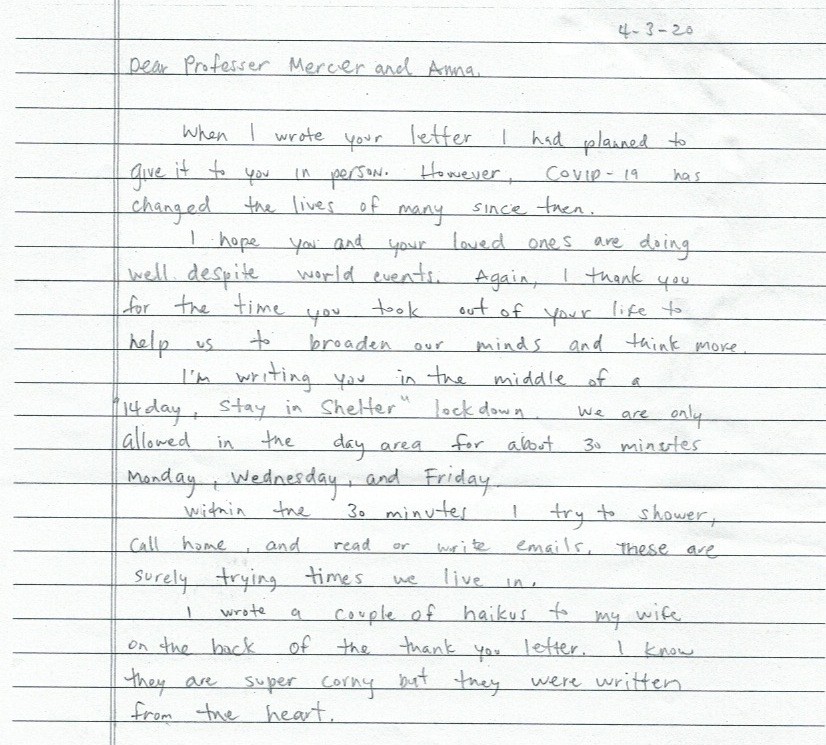 4-3-20
Dear Professer Mercier and Anna,
When I wrote your letter I had planned to
give it to you in person. However, COVID-19 has
changed the lives of many since then.
I hope you and your loved ones are doing
well despite world events. Again, I thank you
for the time you took out of your life to
help us to broaden our minds and think more.
I'm writing you in the middle of a
"14 day, stay in shelter" lockdown. We are only
allowed in the day area for about 30 minutes
Monday, Wednesday, and Friday.
Within the 30 minutes I try to shower,
call home, and read or write emails. These are
surely trying times we live in.
I wrote a couple of haikus to my wife
on the back of the thank you letter. I know
they are super corny but they were written
from the heart.